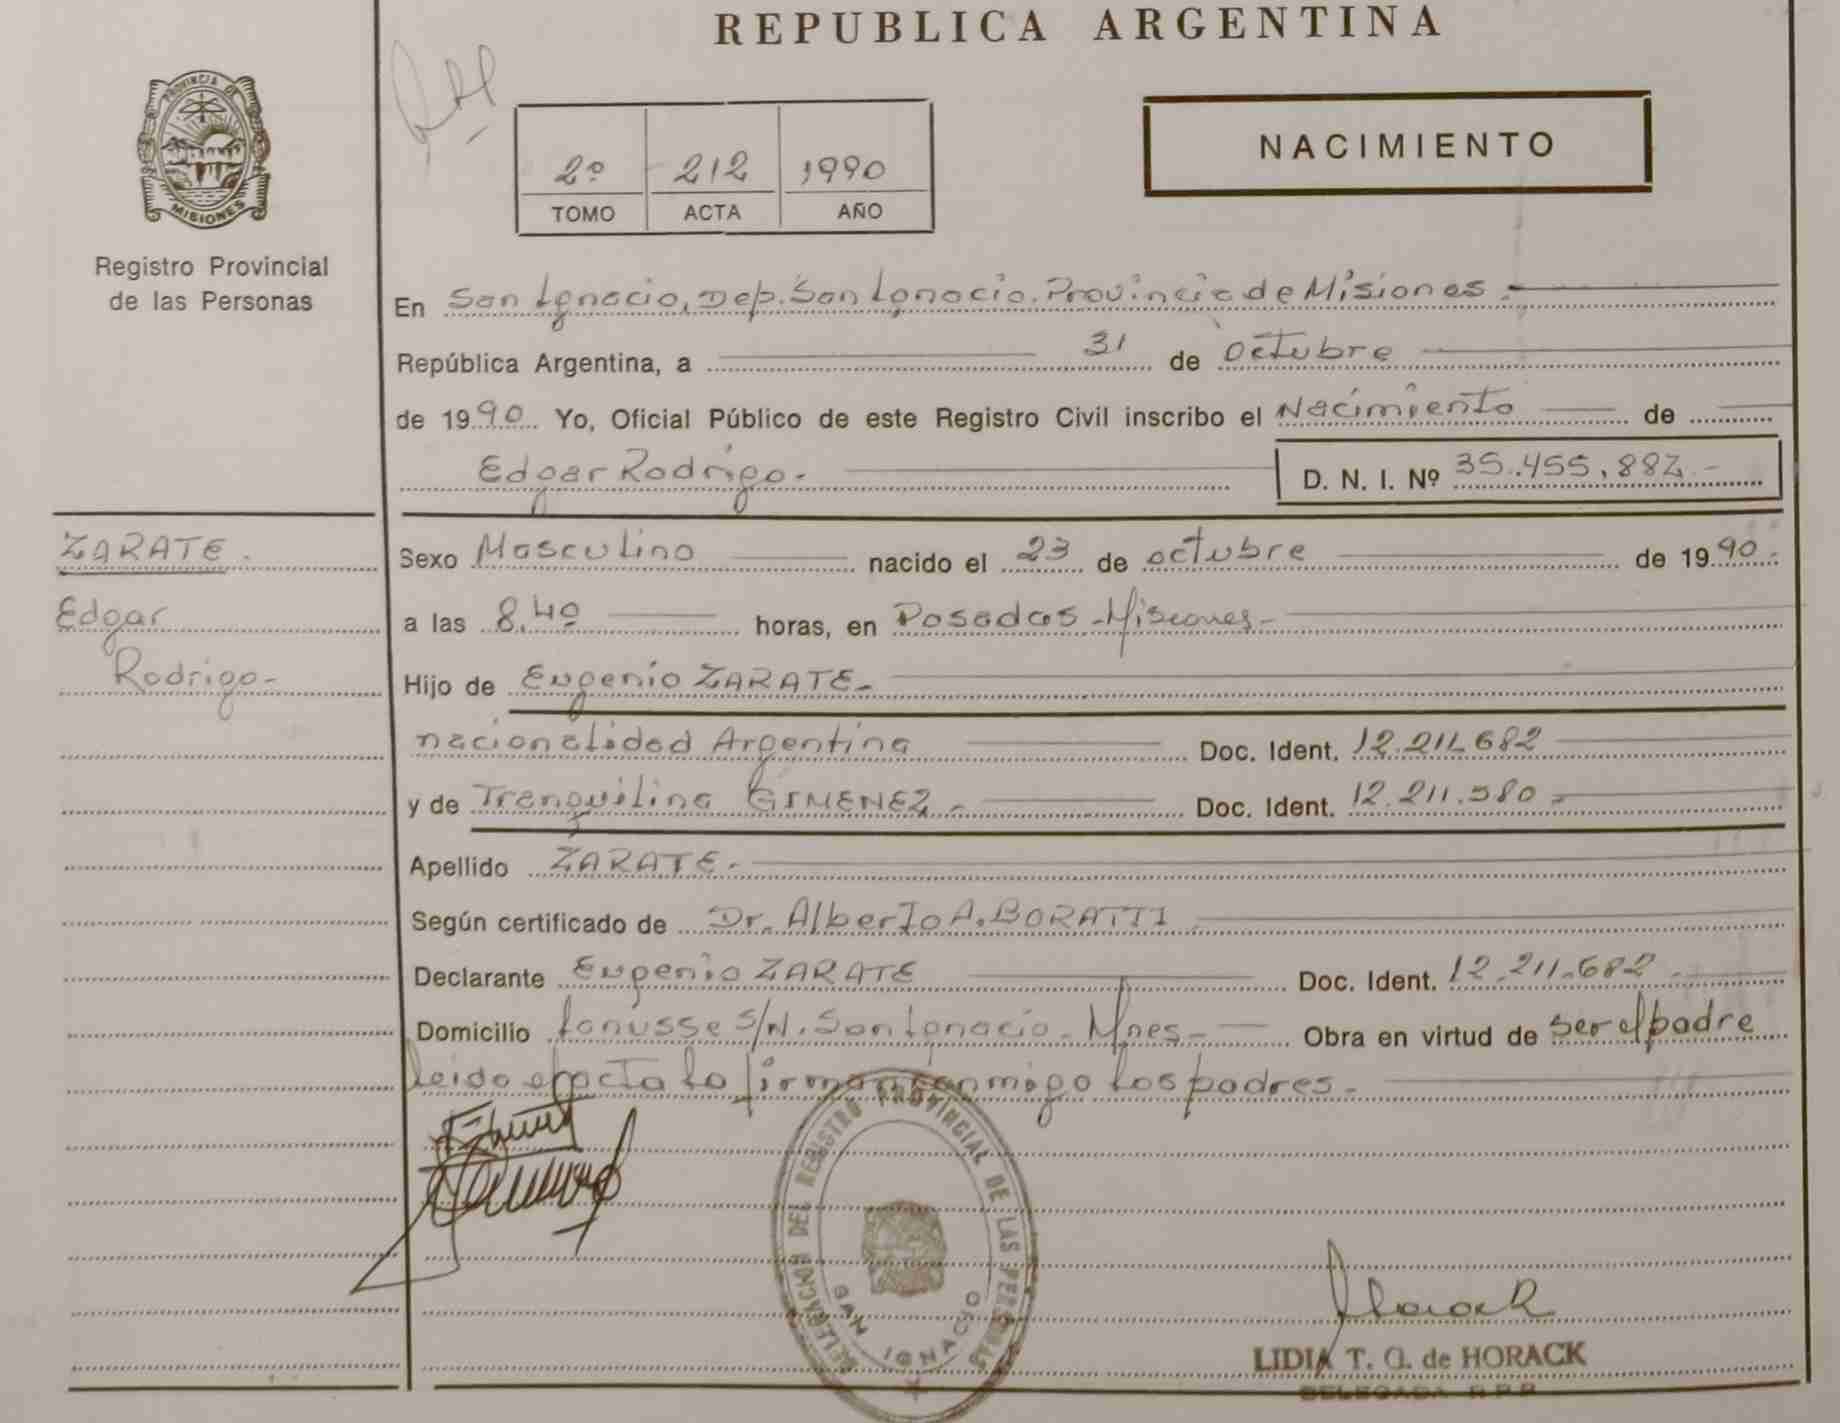 REPUBLICA ARGENTINA
PROVINCIA DE
MISIONES
Registro Provincial
de las Personas
2º 212 1990
TOMO ACTA AÑO
NACIMIENTO
En San Ignacio, Dep. San Ignacio. Provincia de Misiones.
República Argentina, a 31 de Octubre
de 1990 Yo, Oficial Público de este Registro Civil inscribo el Nacimiento de
Edgar Rodrigo.- D. N. I. Nº 35.455.882.-
ZARATE.
Edgar
Rodrigo-
Sexo Masculino nacido el 23 de octubre de 1990.
a las 8,40 horas, en Posadas-Misiones-
Hijo de Eugenio ZARATE-
nacionalidad Argentina Doc. Ident. 12.211.682
y de Tranquilina GIMENEZ.- Doc. Ident. 12.211.580-
Apellido ZARATE-
Según certificado de Dr. Alberto A. BORATTI
Declarante Eugenio ZARATE Doc. Ident. 12.211.682
Domicilio Lanusse S/N. San Ignacio-Mnes- Obra en virtud de ser el padre
leido el acta la firman conmigo los padres-
DELEGACION DEL REGISTRO PROVINCIAL DE LAS PERSONAS
SAN IGNACIO
Horack
LIDIA T. G. de HORACK
DELEGADA R.P.P.